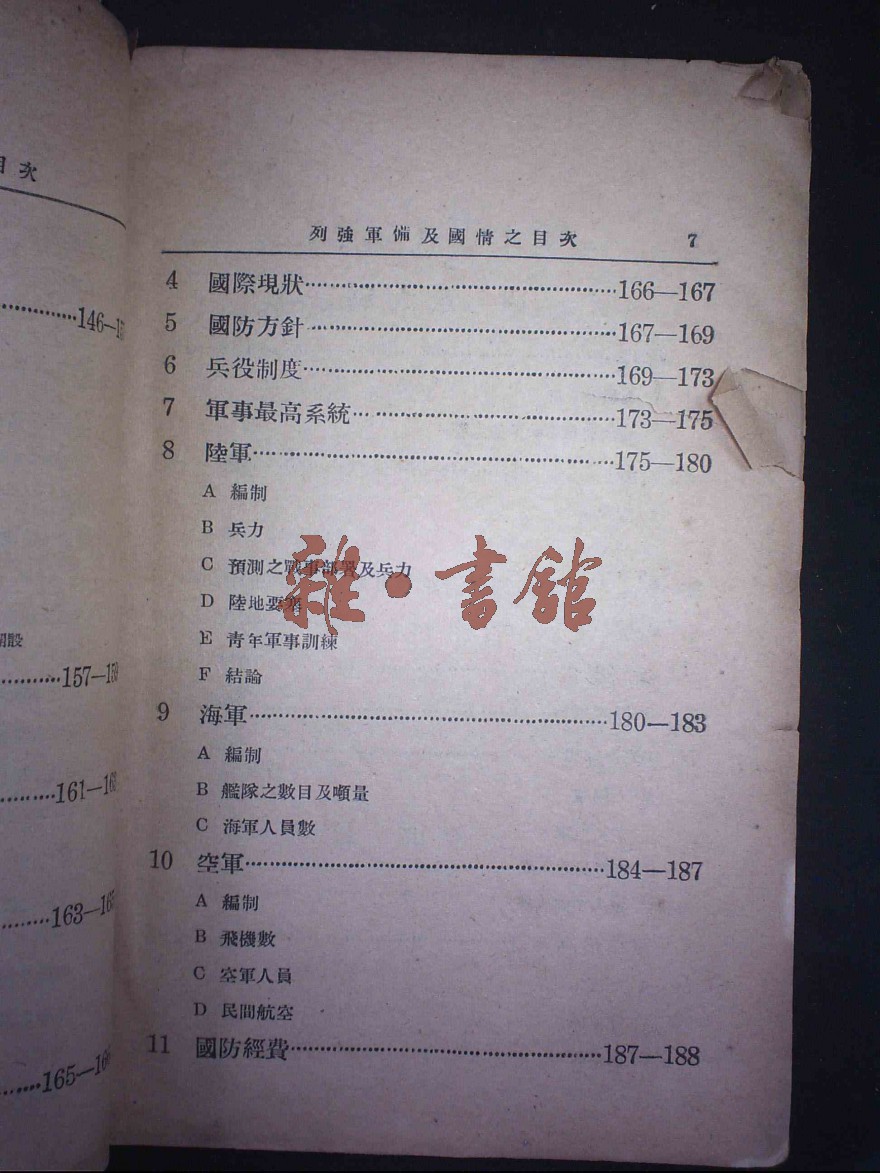 目次
146—1
157—15
161—16
163—16
165—16
列強軍備及國情之目次 7
4 國際現狀 166—167
5 國防方針 167—169
6 兵役制度 169—173
7 軍事最高系統 173—175
8 陸軍 175—180
A 編制
B 兵力
C 預測之戰事部署及兵力
D 陸地要塞
E 靑年軍事訓練
F 結論
9 海軍 180—183
A 編制
B 艦隊之數目及噸量
C 海軍人員數
10 空軍 184—187
A 編制
B 飛機數
C 空軍人員
D 民間航空
11 國防經費 187—188
雜·書館